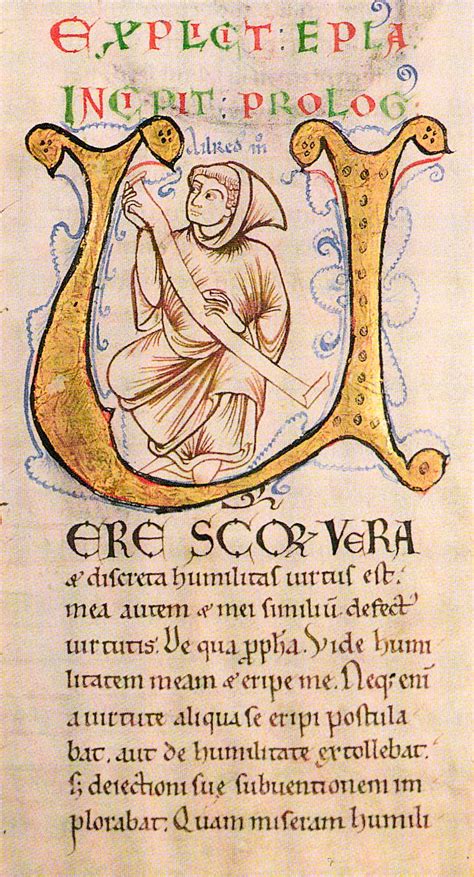 EXPLICIT : EPLA
INCIPIT : PROLOG
Ailred m
U
ERE SCOꝜ VERA
⁊ discreta humilitas uirtus est.
mea autem ⁊ mei similiū, defect᾽
uirtutis. De qua ꝓph̄a. Vide humi
litatem meam ⁊ eripe me. Neq; eni̅
a uirtute aliqua se eripi postula
bat, aut de humilitate extollebat᾽.
ꞩ deiectioni sue subuentionem im
plorabat. Quam miseram humili